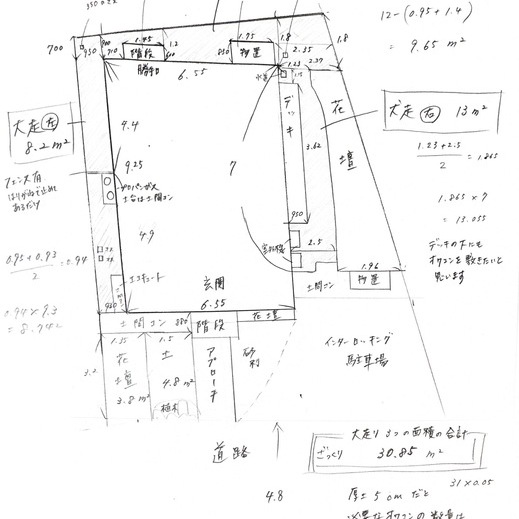 12-(0.95+1.4)
= 9.65 m²
700
950
1.45
1.2
階段
勝手口
850
1.75
物置
1.8
2.35
1.8
6.55
1.23
2.37
デッキ
花壇
犬走 左
8.2 m²
犬走 右 13 m²
4.4
9.25
7
3.62
1.23+2.5
2
= 1.865
フェンス有
はりがねで止めて
あるだけ
プロパンガス
土台は土間コン
1.865 × 7
= 13.055
950
0.95+0.93
2
= 0.94
4.9
エコキュート
室外機
2.5
デッキの下にも
オワコンを敷きたいと
思います
0.94 × 9.3
= 8.742
930
玄関
6.55
土間コン
1.96
物置
土間コン
880
階段
花壇
1.35
1.5
3.2
花壇
3.8 m²
土
4.8 m²
植木
アプローチ
砂利
インターロッキング
駐車場
道路
犬走り 3つの面積の合計
ざっくり 30.85 m²
31×0.05
4.8
厚さ 5cm だと
必要なオワコンの数量は